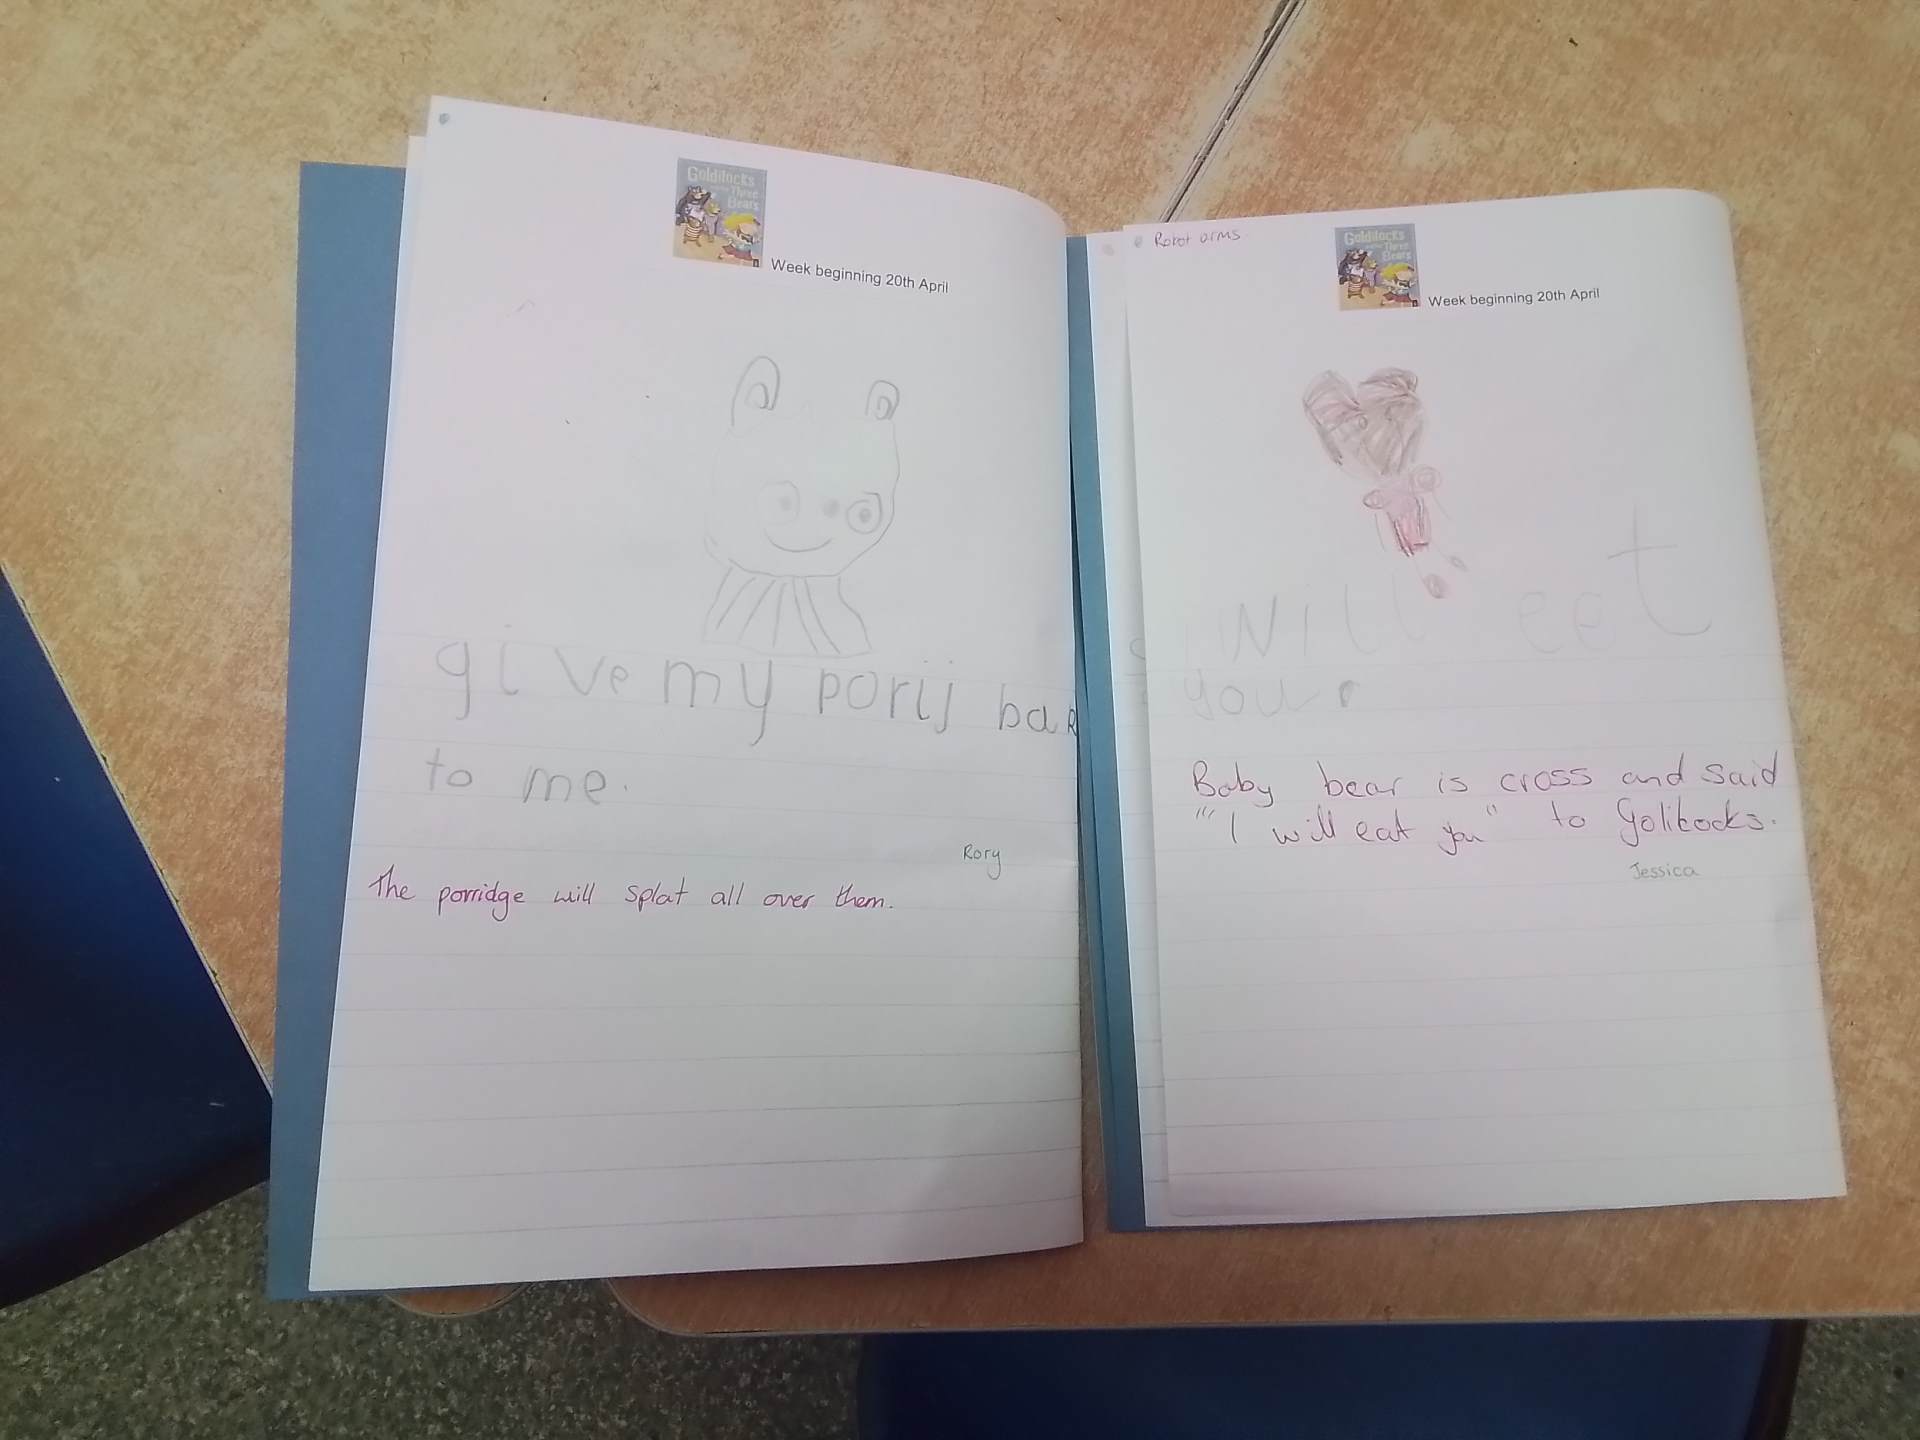 Goldilocks
and the
Three
Bears
Week beginning 20th April
give my porij bak
to me.
Rory
The porridge will splat all over them.
Robot arms
Goldilocks
and the
Three
Bears
Week beginning 20th April
will eat
you
Baby bear is cross and said
"" I will eat you" to Golikocks.
Jessica